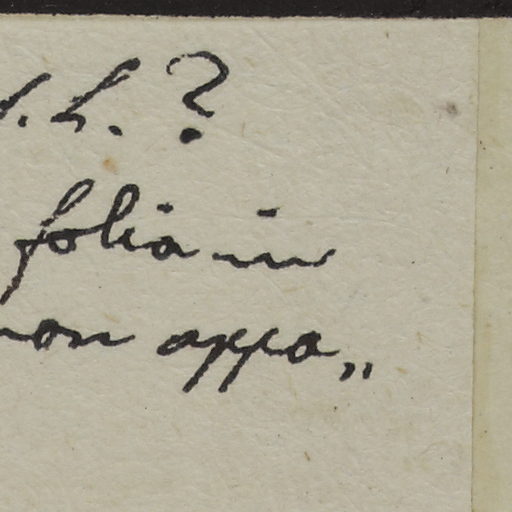 s.h.?
folia in
non appa„